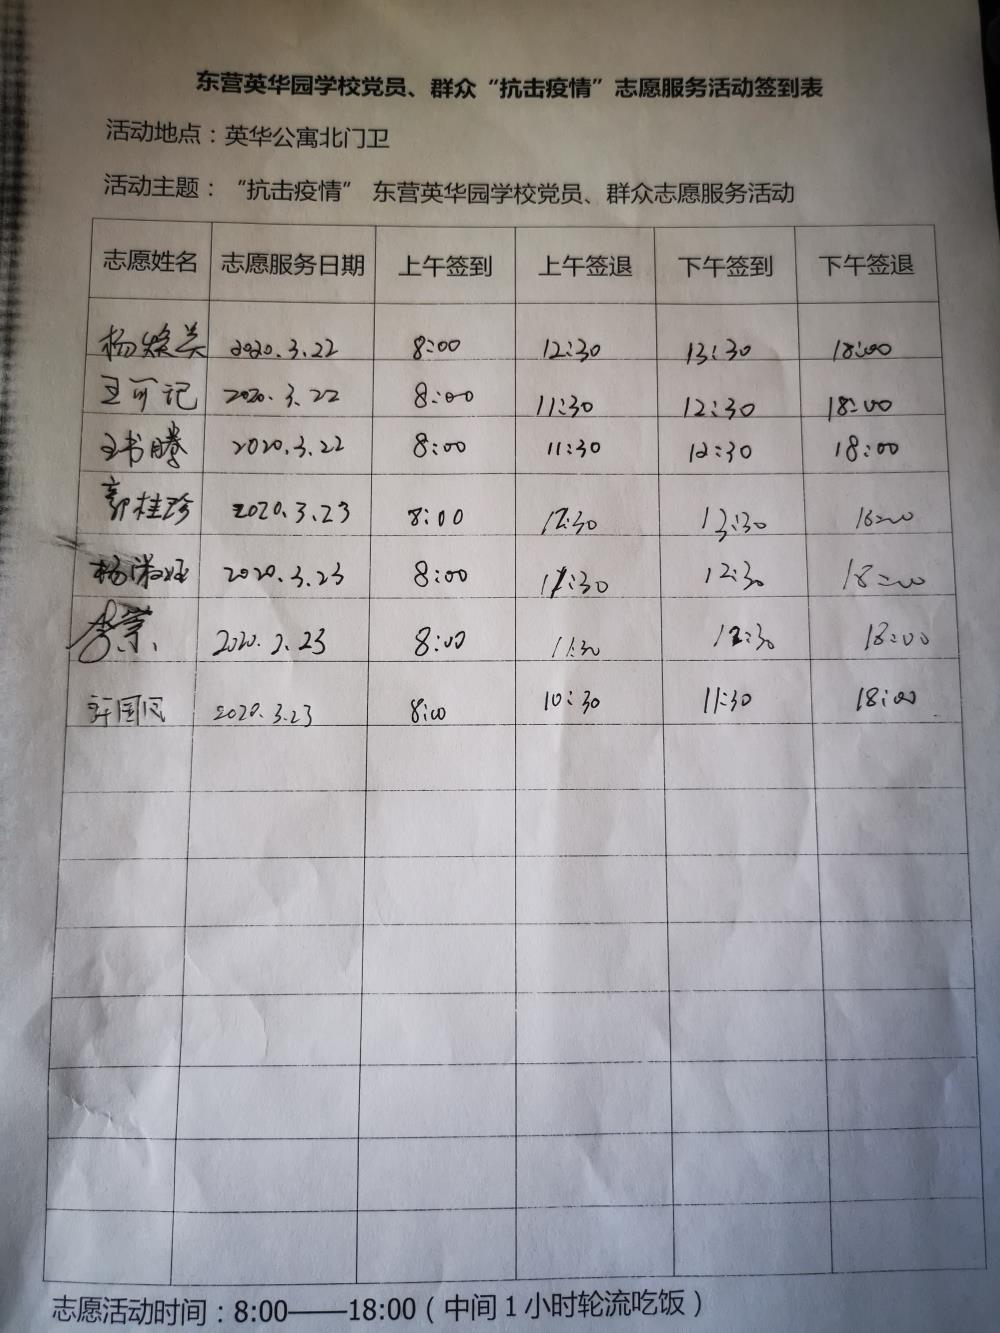 东营英华园学校党员、群众“抗击疫情”志愿服务活动签到表
活动地点：英华公寓北门卫
活动主题：“抗击疫情” 东营英华园学校党员、群众志愿服务活动
志愿姓名 志愿服务日期 上午签到 上午签退 下午签到 下午签退
杨 2020.3.22 8:00 12:30 13:30 18:00
王可记 2020.3.22 8:00 11:30 12:30 18:00
王书腾 2020.3.22 8:00 11:30 12:30 18:00
郭桂珍 2020.3.23 8:00 12:30 13:30 18:00
杨淑 2020.3.23 8:00 11:30 12:30 18:00
李 2020.3.23 8:00 11:30 12:30 18:00
国民 2020.3.23 8:00 10:30 11:30 18:00
志愿活动时间：8:00——18:00（中间1小时轮流吃饭）